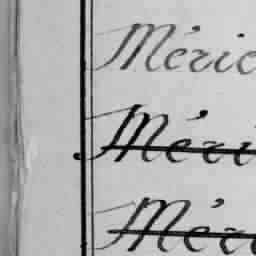 Méric
Méri
Méri